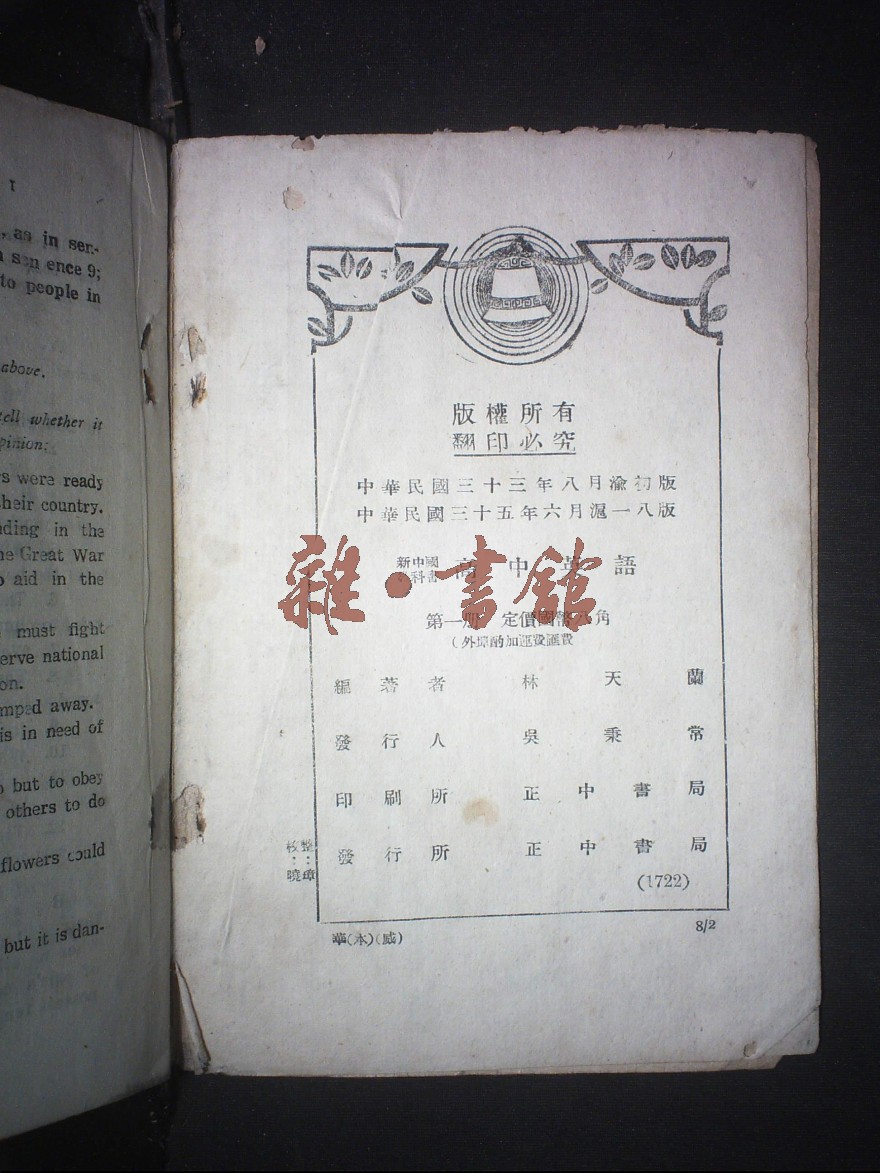 I
, as in sen-
sen ence 9;
to people in
above.
tell whether it
opinion:
s were ready
their country.
nding in the
he Great War
o aid in the
must fight
erve national
on.
mped away.
is in need of
o but to obey
others to do
flowers could
but it is dan-
版權所有
翻印必究
中華民國三十三年八月渝初版
中華民國三十五年六月滬一八版
新中國教科書 高中英語
第一册 定價國幣 角
(外埠酌加運費匯費
編著者 林天蘭
發行人 吳秉常
印刷所 正中書局
發行所 正中書局
(1722)
校整
:：
曉璋
華(本)(威)
8/2
雜·書館